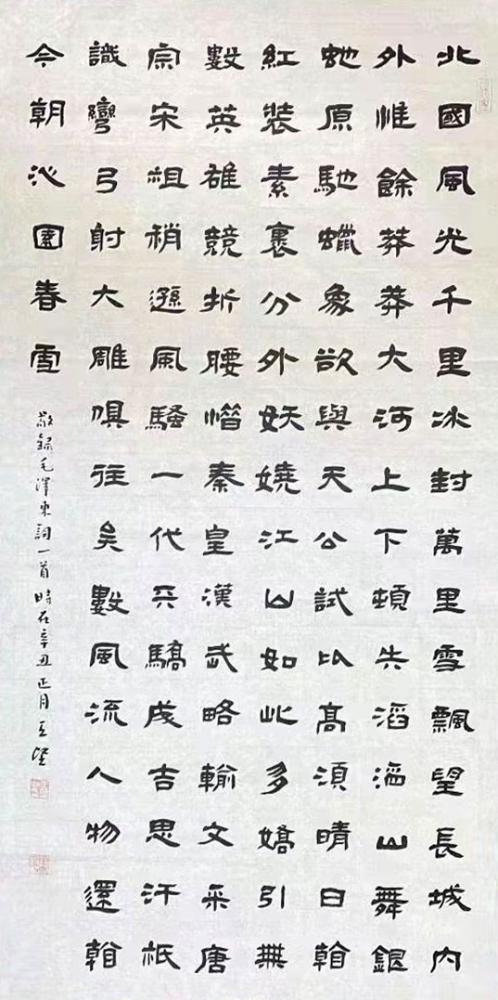 北國風光千里冰封萬里雪飄望長城内
外惟餘莽莽大河上下頓失滔滔山舞銀
虵原馳蠟象欲與天公試比高須晴日看
紅裝素裹分外妖嬈江山如此多嬌引無
數英雄競折腰惜秦皇漢武略輸文采唐
宗宋祖稍遜風騷一代天驕成吉思汗祇
識彎弓射大雕俱往矣數風流人物還看
今朝沁園春雪
敬錄毛澤東詞一首 時在辛丑正月